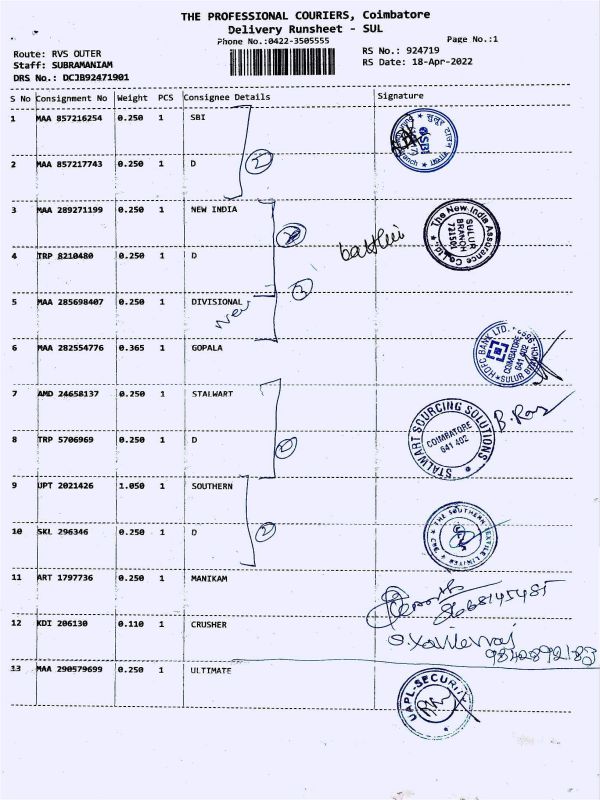 THE PROFESSIONAL COURIERS, Coimbatore
Delivery Runsheet - SUL
Phone No.:0422-3505555 Page No.:1
Route: RVS OUTER RS No.: 924719
Staff: SUBRAMANIAM RS Date: 18-Apr-2022
DRS No.: DCJB92471901
S No Consignment No Weight PCS Consignee Details Signature
1 MAA 857216254 0.250 1 SBI
SBI
2 MAA 857217743 0.250 1 D
2
3 MAA 289271199 0.250 1 NEW INDIA
The New India Assurance Co. Ltd.
SULUR
BRANCH
721501
4 TRP 8210480 0.250 1 D
3
5 MAA 285698407 0.250 1 DIVISIONAL
New
HDFC BANK LTD.
COIMBATORE
641 402
SULUR BRANCH
6 MAA 282554776 0.365 1 GOPALA
7 AMD 24658137 0.250 1 STALWART
B. Raj
STALWART SOURCING SOLUTIONS
COIMBATORE
641 402
8 TRP 5706969 0.250 1 D
2
9 UPT 2021426 1.050 1 SOUTHERN
THE SOUTHERN TEXTILE LIMITED
10 SKL 296346 0.250 1 D
2
11 ART 1797736 0.250 1 MANIKAM
12 KDI 206130 0.110 1 CRUSHER
9842892183
13 MAA 290579699 0.250 1 ULTIMATE
UAPL-SECURITY